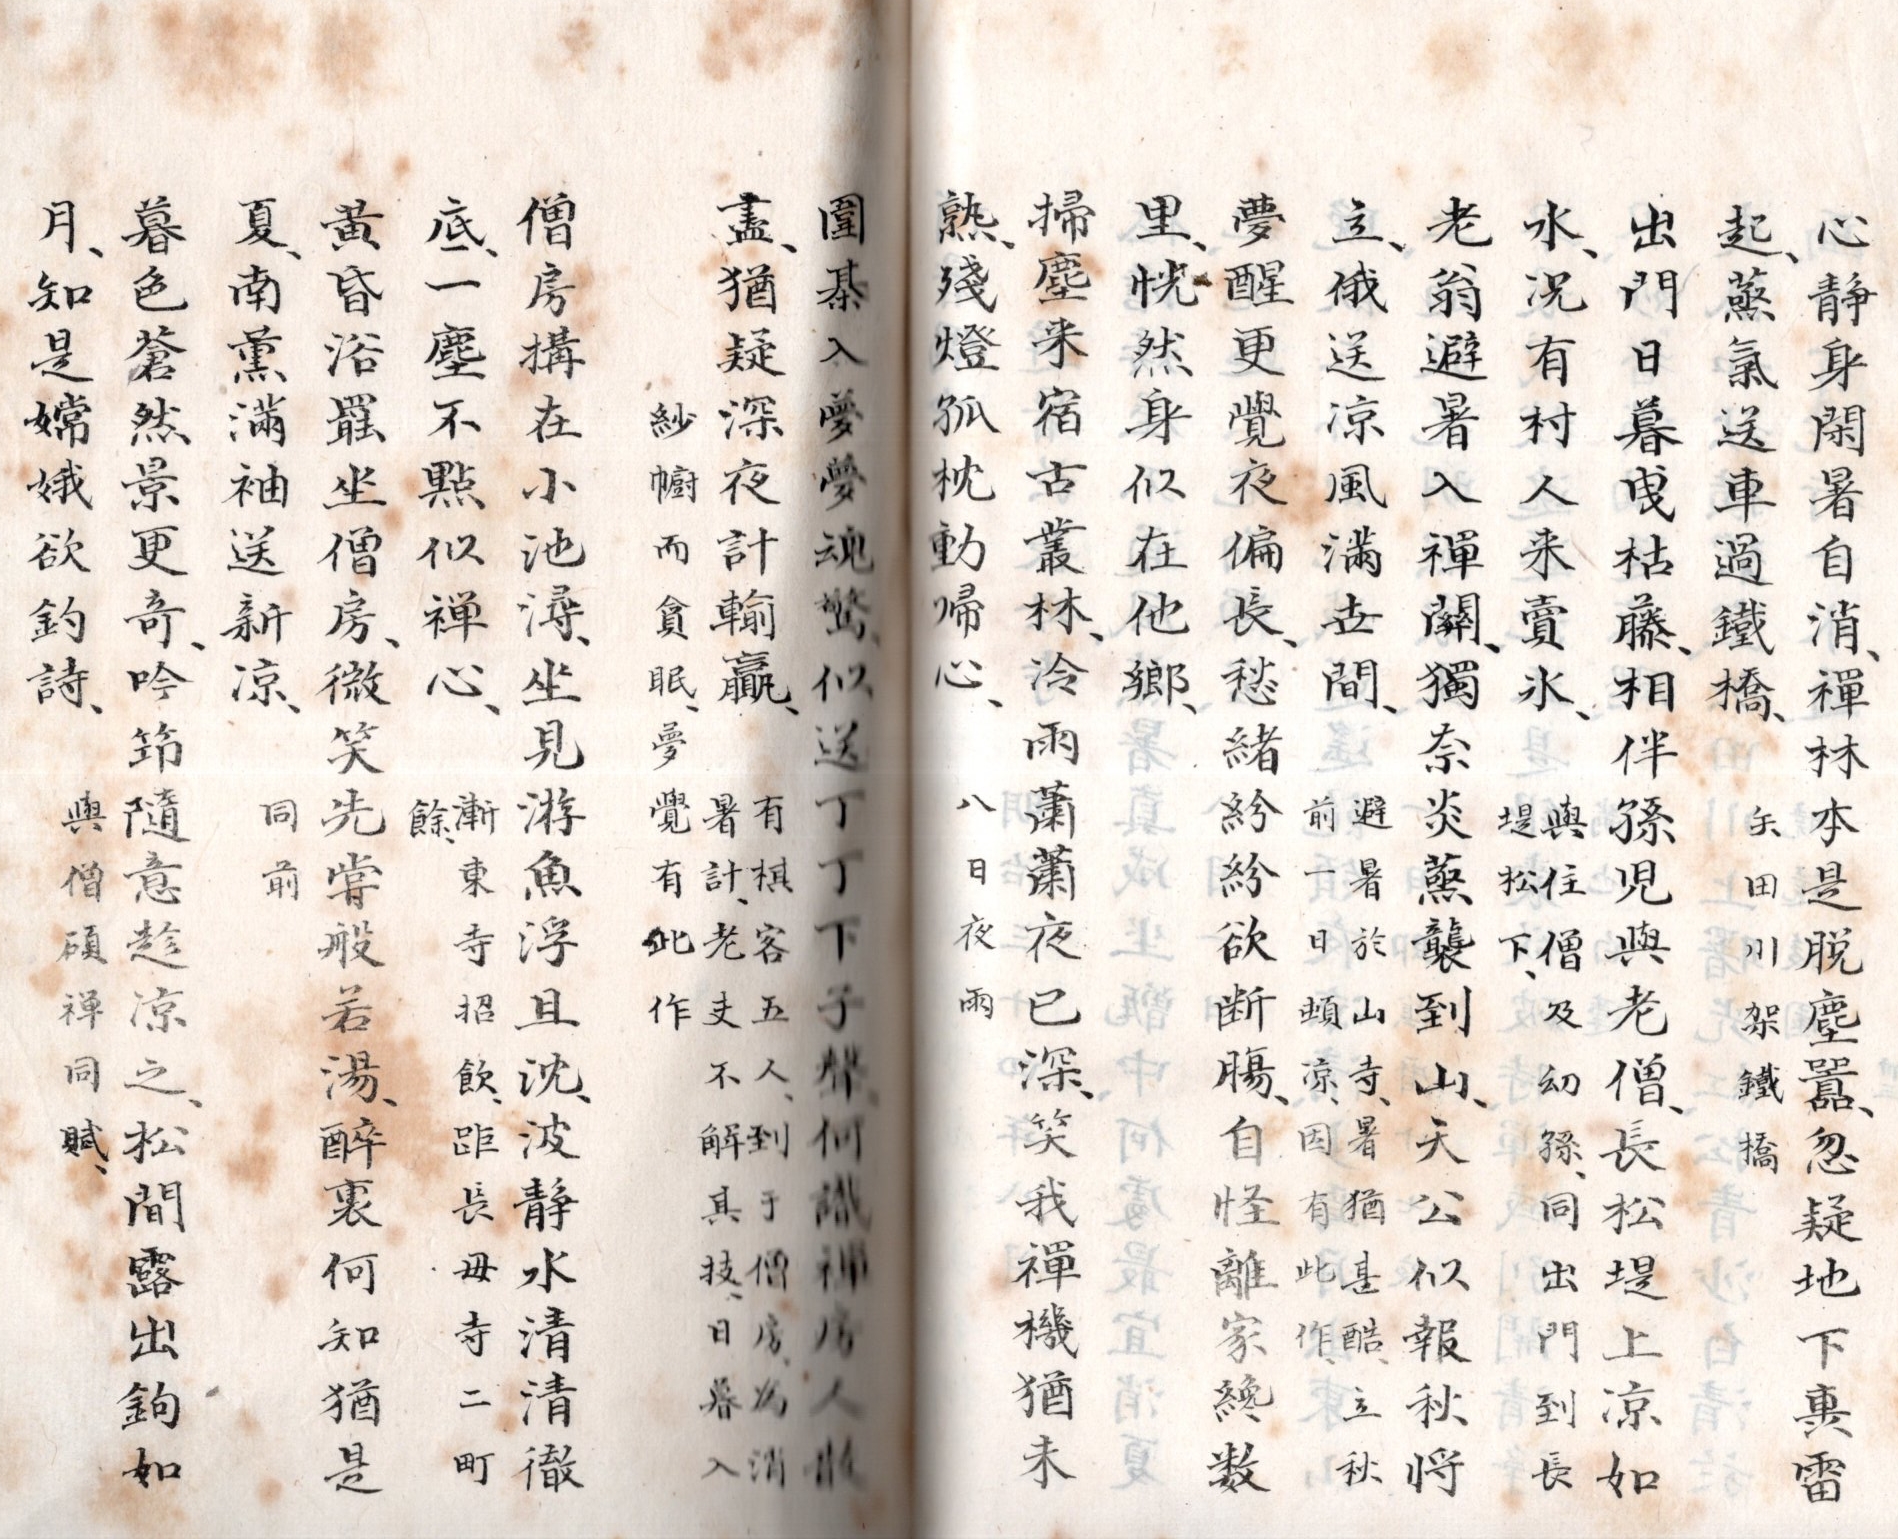 心静身閑暑自消、禪林本是脱塵囂、忽疑地下轟雷
起、蒸氣送車過鐵橋、
矢田川架鐵橋
出門日暮曳枯藤、相伴孫児與老僧、長松堤上凉如
水、況有村人来賣氷、
與住僧及幼孫、同出門到長
堤松下、
老翁避暑入禪關、獨奈炎蒸襲到山、天公似報秋将
立、俄送凉風満世間、
避暑於山寺、暑猶甚酷、立秋
前一日頓凉、因有此作、
夢醒更覺夜偏長、愁緒紛紛欲断腸、自怪離家纔数
里、恍然身似在他郷、
掃塵来宿古叢林、冷雨蕭蕭夜已深、笑我禪機猶未
熟、殘燈孤枕動帰心、
八日夜雨
圍棊入夢夢魂驚、似送丁丁下子聲、何識禅房人散
盡、猶疑深夜計輸贏、
有棋客五人、到于僧房、為消
暑計、老夫不解其技、日暮入
紗幮而貪眠、夢覺有此作
僧房搆在小池潯、坐見游魚浮且沈、波静水清清徹
底、一塵不點似禅心、
漸東寺招飲、距長毋寺二町
餘、
黄昏浴罷坐僧房、微笑先嘗般若湯、醉裏何知猶是
夏、南薫満袖送新凉、
同前
暮色蒼然景更奇、吟笻隨意趁凉之、松間露出鉤如
月、知是嫦娥欲釣詩、
與僧碩禅同賦、